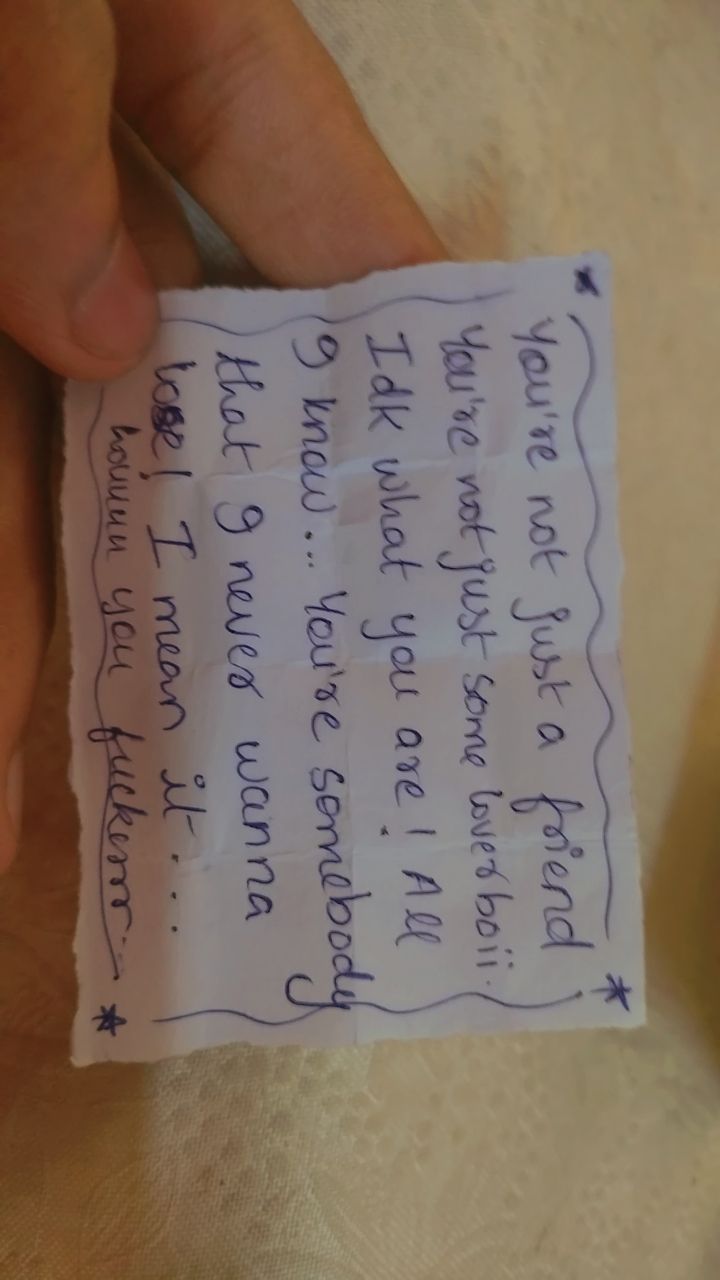 You're not just a friend
You're not just some loverboii.
Idk what you are! All
I know... You're somebody
that I never wanna
lose! I mean it....
you fuckerrr...